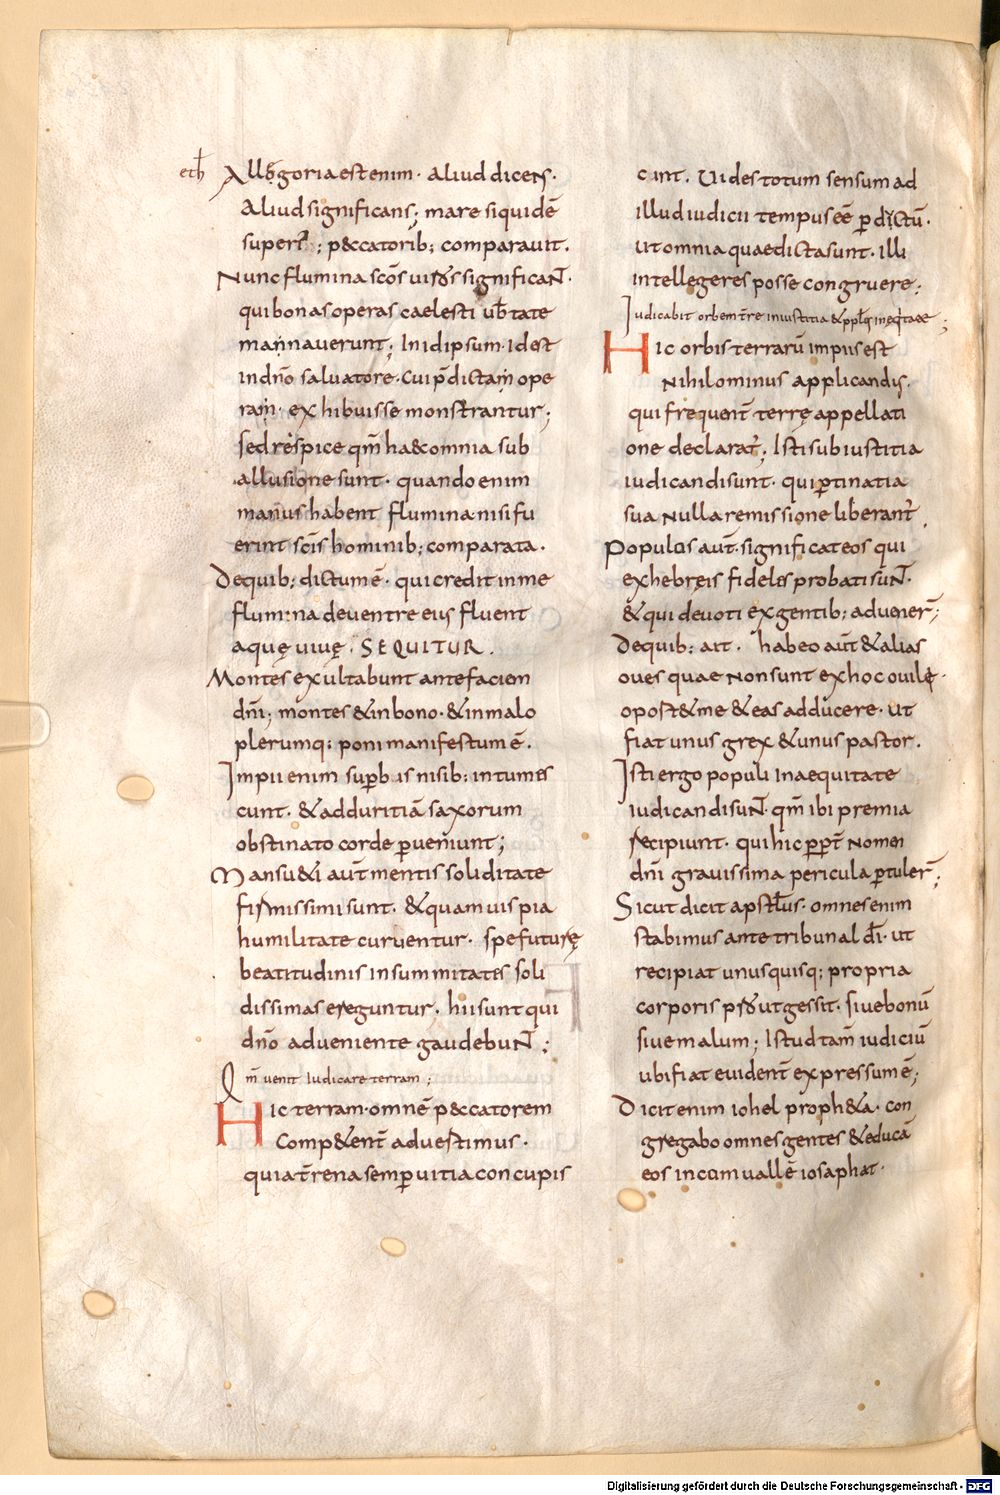 eth
Allegoria est enim · aliud dicens ·
Aliud significans; mare siquidē
superꝰ; p&ccatorib; comparauit.
Nunc flumina scōs uiros significaNT ·
qui bonas operas caelesti ub̄tate
mannauerunt; In id ipsum · id est
in dn̄o saluatore · cui p̄dictam ope
ram · exhibuisse monstrantur;
sed respice qm̄ haec omnia sub
allusione sunt · quando enim
manus habent flumina nisi fu
erint sc̄is hominib; comparata ·
De quib; dictum ē · qui credit in me
flumina de uentre eius fluent
aquę uiuę · SEQUITUR ·
Montes exultabunt ante faciem
dn̄i; montes & in bono · & in malo
plerumq; poni manifestum ē ·
Impii enim superbis nisib; intumes
cunt · & ad duritiā saxorum
obstinato corde ꝑueniunt;
Mansu&i aut̄ mentis soliditate
firmissimi sunt · & quamuis pia
humilitate curuentur · spe futurę
beatitudinis in summitates soli
dissimas ereguntur · hii sunt qui
dn̄o adueniente gaudebuNT;
Qm̄ uenit Iudicare terram;
Hic terram · omnē p&ccatorem
Comp&ent̄ aduertimus ·
quia t̄rena semꝑ uitia concupis
cunt · Uides totum sensum ad
illud iudicii tempus eē ꝑdictū ·
ut omnia quae dicta sunt · illi
intellegeres posse congruere;
Iudicabit orbem t̄re in iustitia & ppl̄os in eq̇tate;
Hic orbis terrarū impus est
Nihilominus applicandis ·
qui frequent̄ terrę appellati
one declarat̄; Isti sub iustitia
iudicandi sunt · qui ꝑtinatia
sua nulla remissione liberant̄ ·
Populus aut̄ · significat eos qui
ex hebręis fideles probati suNT ·
& qui deuoti ex gentib; aduener̄;
De quib; ait · habeo aut̄ & alias
oues quae non sunt ex hoc ouilę ·
oport& me & eas adducere · ut
fiat unus grex & unus pastor ·
Isti ergo populi In aequitate
iudicandi suNT · qm̄ ibi premia
recipiunt · qui hic ꝓpt̄ nomen
dn̄i grauissima pericula ꝑtuler̄;
Sicut dicit apostl̄us · omnes enim
stabimus ante tribunal dī · ut
recipiat unusquisq; propria
corporis prout gessit · siue bonū
siue malum; Istud tam̄ iudiciū
ubi fiat euident̄ expressum ē;
Dicit enim iohel proph&a · con
gregabo omnes gentes & educā
eos in cumuallē iosaphat ·
Digitalisierung gefördert durch die Deutsche Forschungsgemeinschaft - DFG